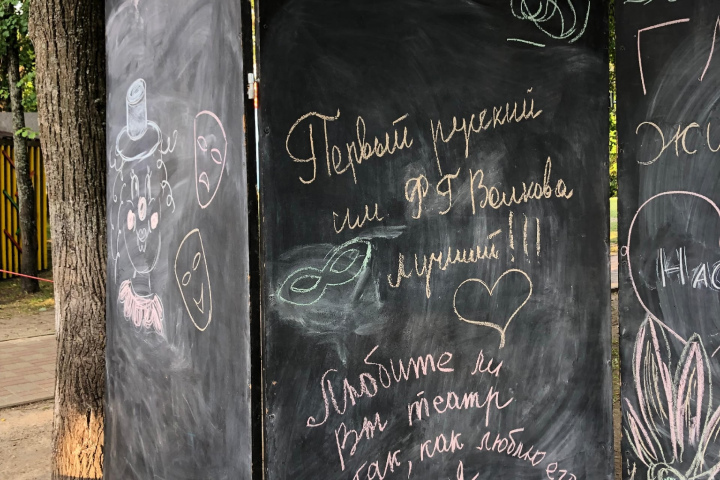 Первый русский
им Ф Г Волкова
лучший!!!
Любите ли
Вы театр
так, как люблю его
Г
жи
Нас